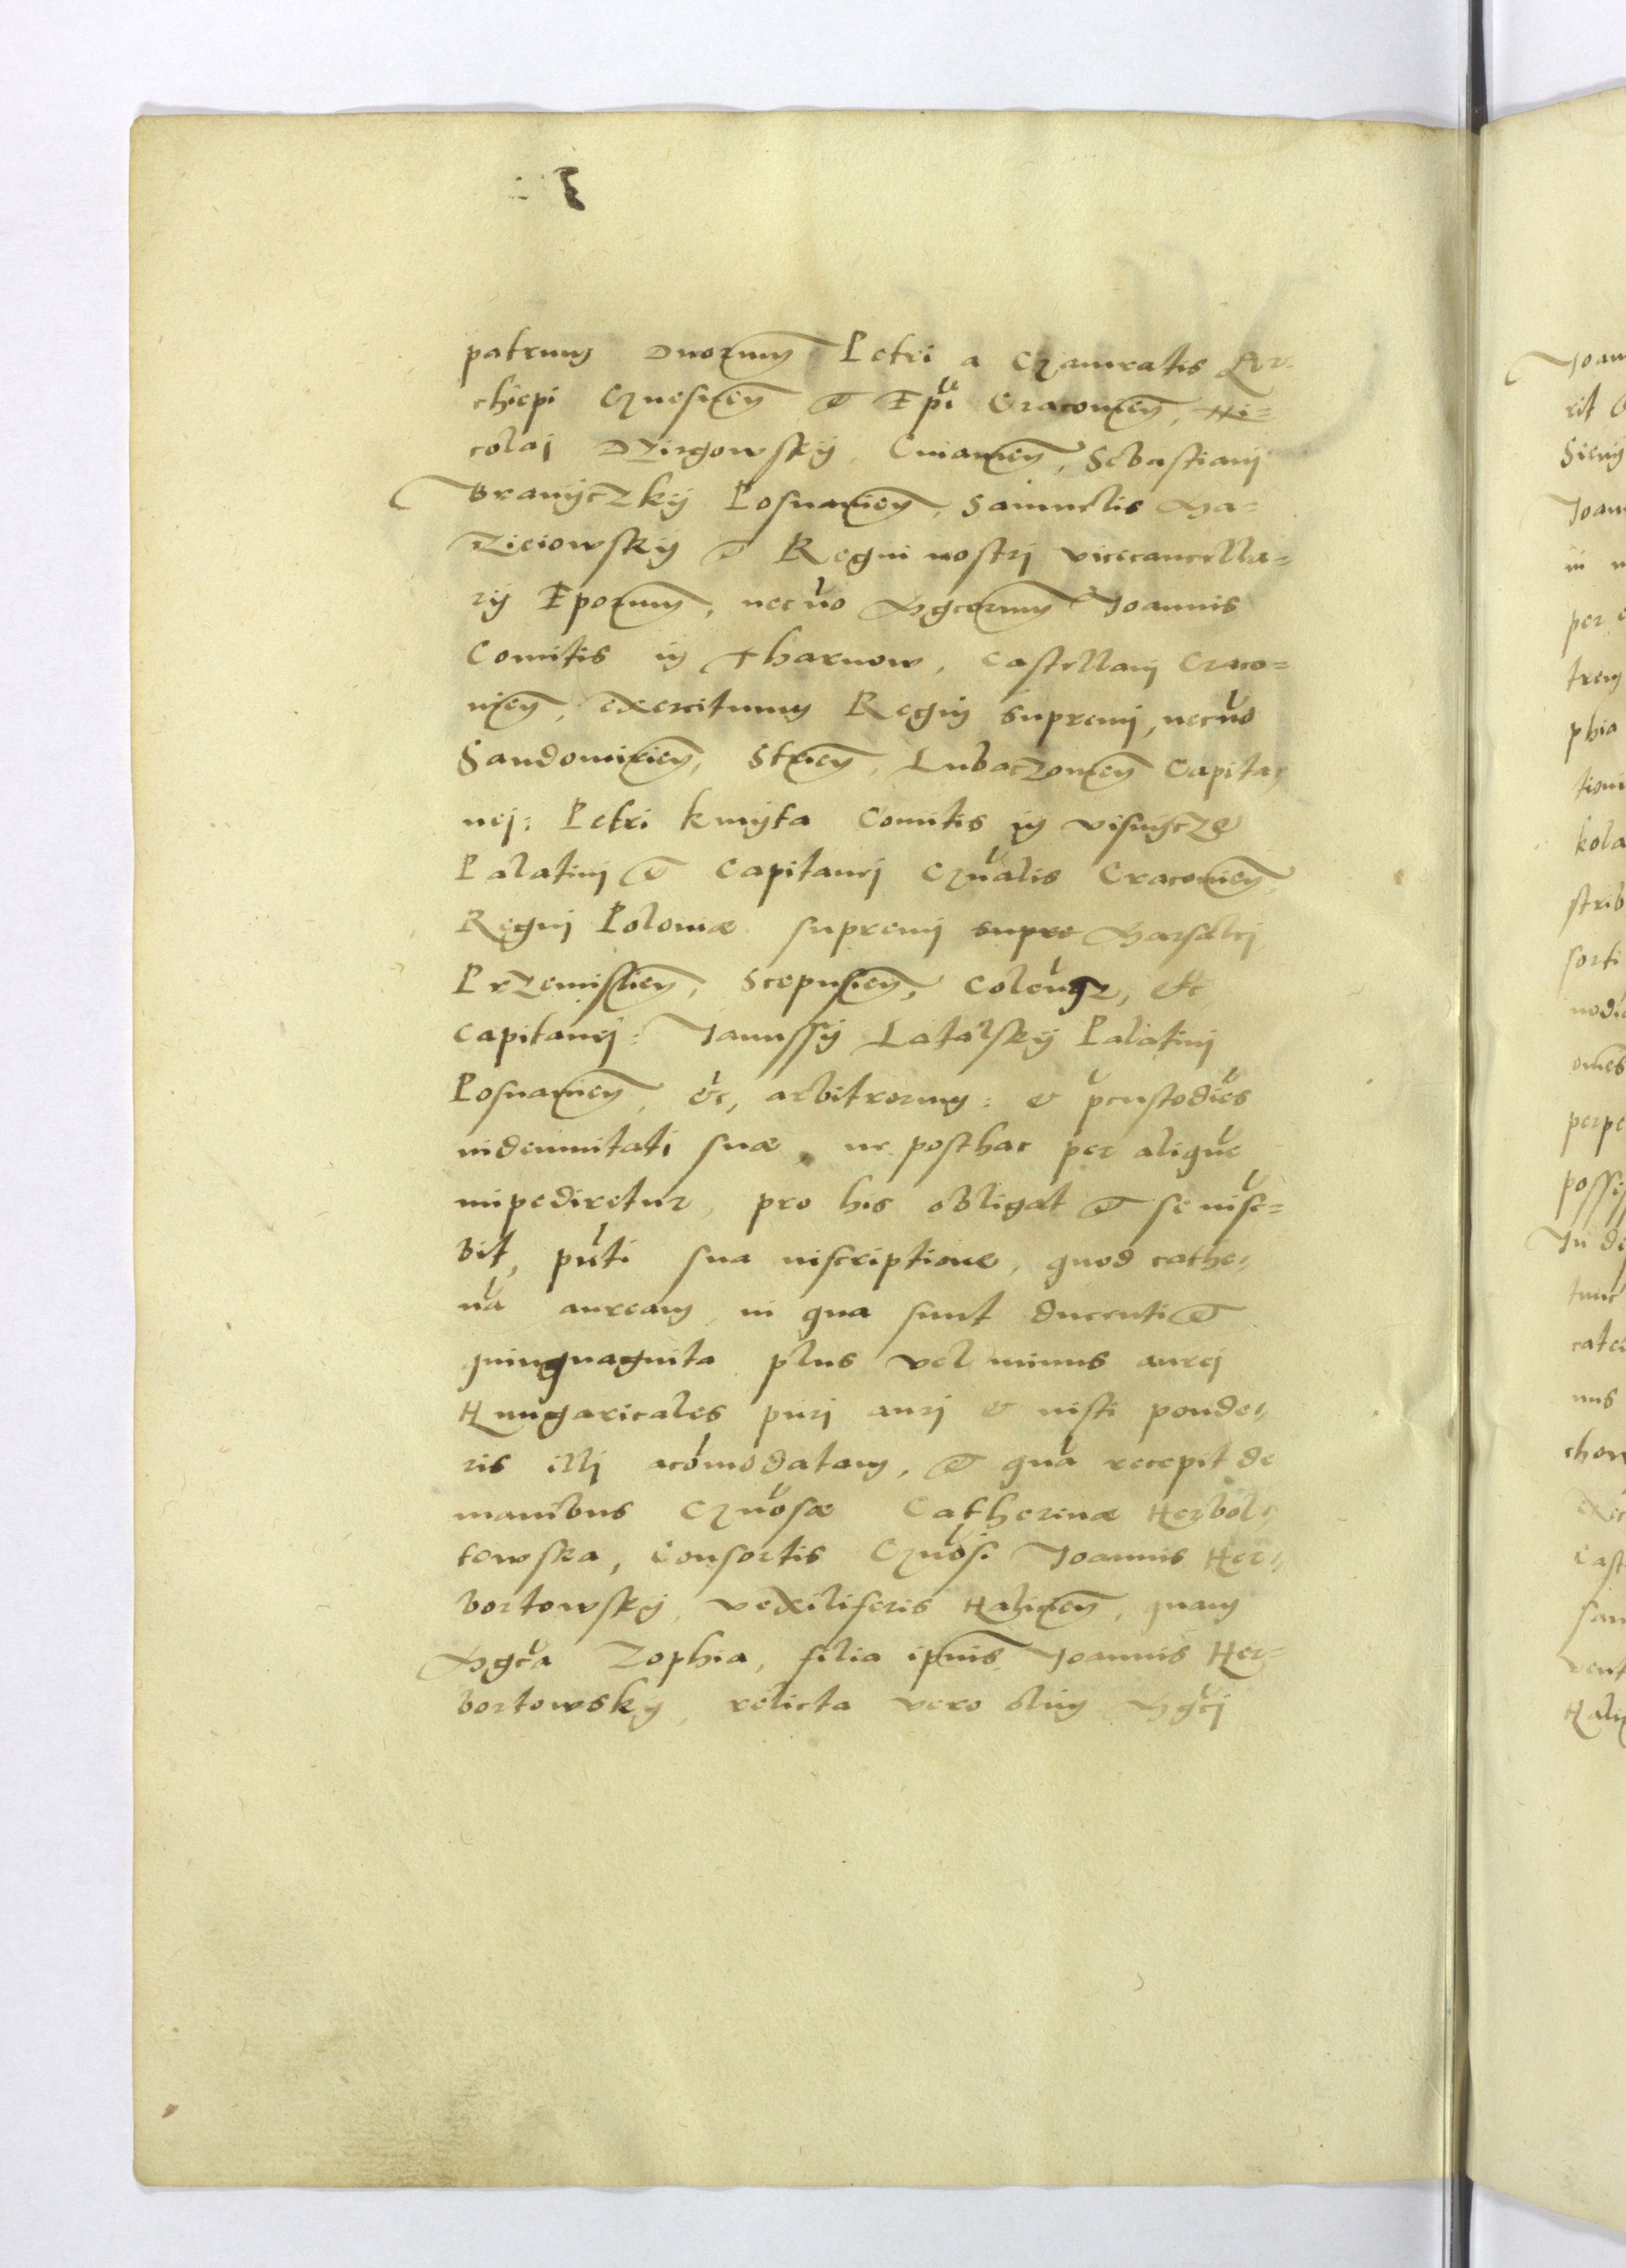 patrum Dnorum Petri a Gzamratis Ar-
chiepi Gznesnien et Epi Cracovien, Ni=
colaj Dzirgowsky, Cuiavien, Sebastianj
Branyczky Posnanien, Samuelis Ma=
ziciowsky et Regni nostrj vicecancella=
rij Eporum, necno Mgcorum Joannis
Comitis in Tharnow, Castellanj Craco=
vien, exercituum Regni supremj, necno
Sandomirien, Strien, Lubaczovien Capita=
nej: Petri Kmyta Comitis in Visnycze
Palatinj et Capitanej Gznalis Cracovien,
Regnj Poloniæ supremj supre Marsalcj,
Przemislien, Scepusien, Colensz, etc
Capitanej: Janussij Latalsky Palatinj
Posnanien, etc, arbitrorum: et pcustodies
indemnitati suæ, ne posthac per alique
impediretur, pro his obligat et se inscr=
bit, pnti sua inscriptione, quod cathe=
na auream, in qua sunt ducenti et
quinquaginta plus vel minus aurej
Hungaricales purj aurj et iusti ponde=
ris illj acomodatam, et qua recepit de
manibus Gznosæ Catherinæ Herbol=
towska, Consortis Gznosi Joannis Her=
bortowsky, vexiliferis Halicien, quam
Mgca Zophia, filia ipsius Joannis Her=
bortowsky, relicta vero olim Mgcj
Joan
rit
Sieny
Joan
in
per
trem
phia
tioni
kola
strib
sorti
nodi
omes
perpe
possis
In de
tunc
cate
nus
chow
exe
Cast
san
vent
Hali